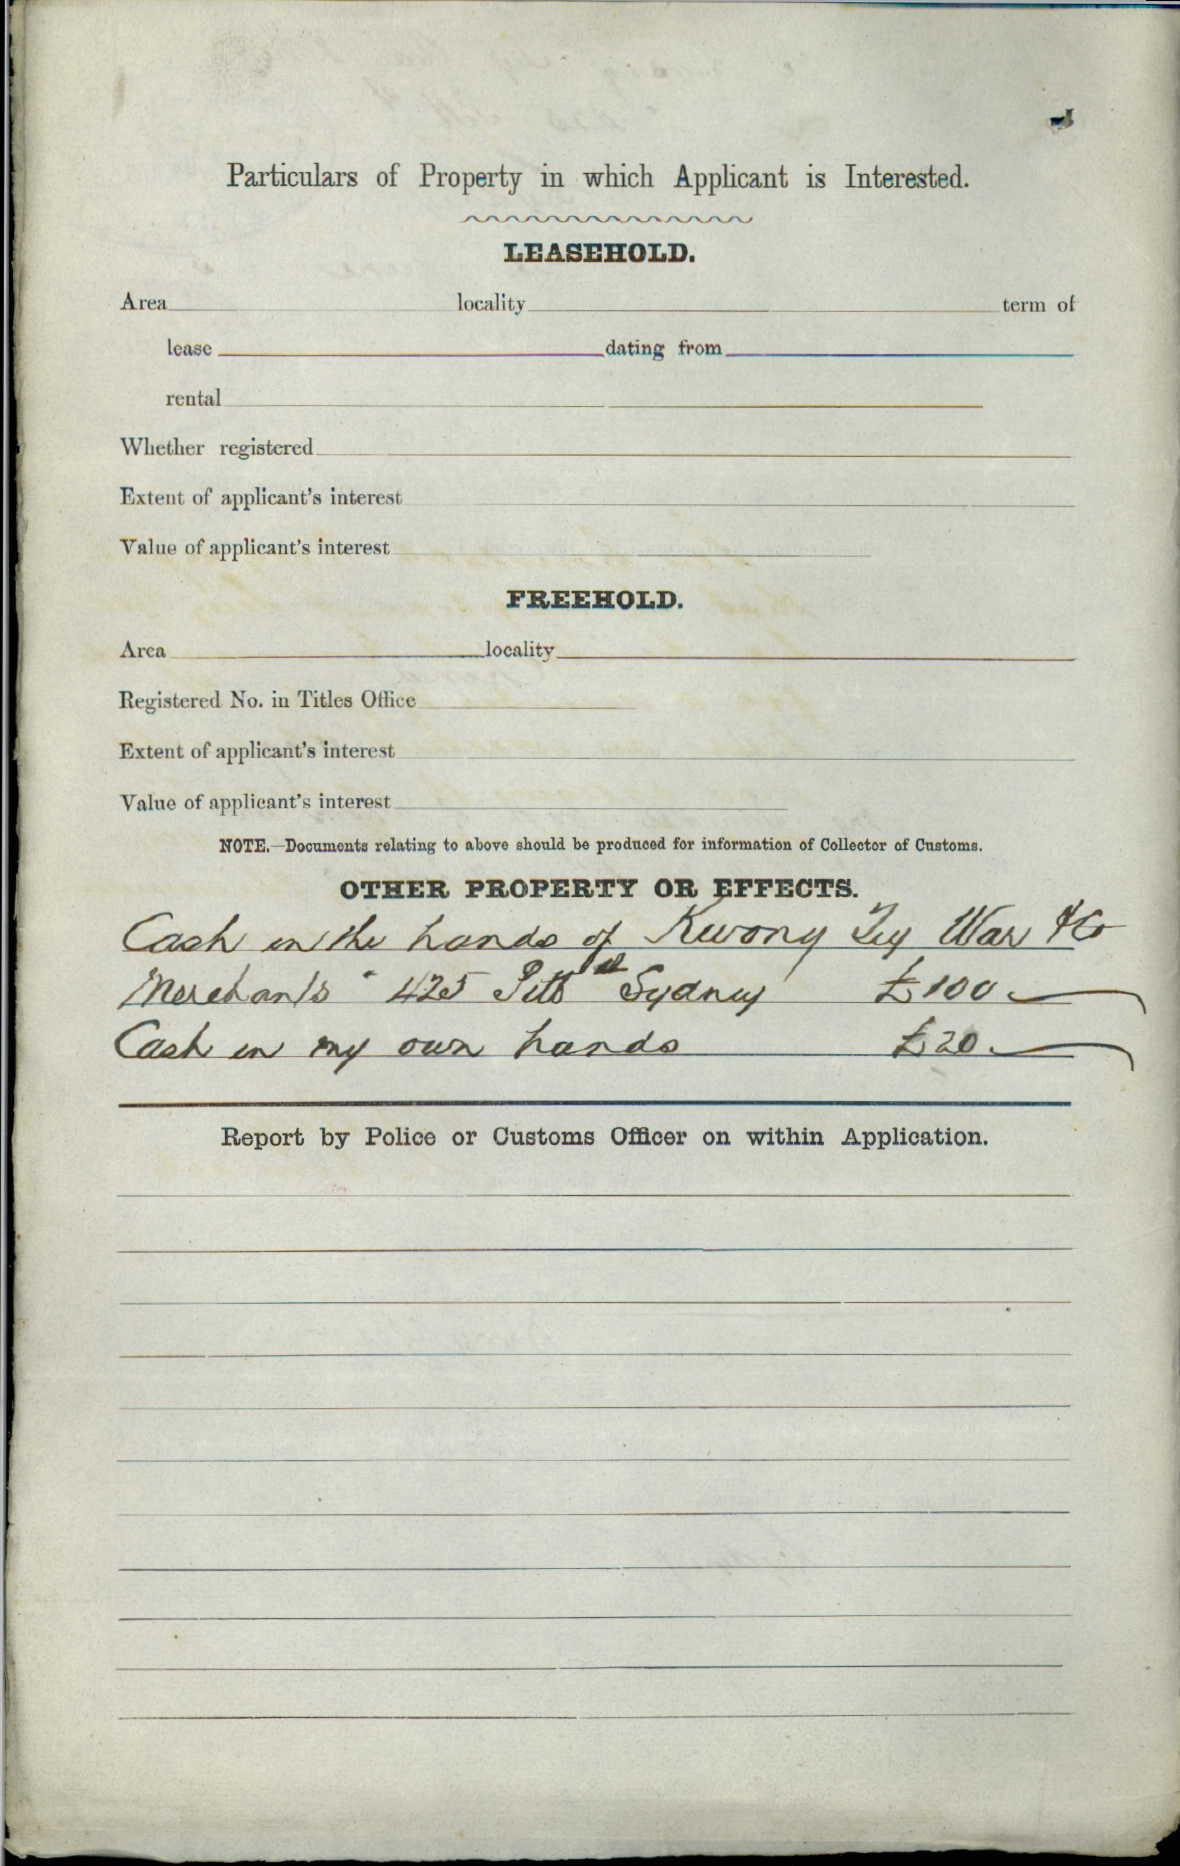 Particulars of Property in which Applicant is Interested.
LEASEHOLD.
Area locality term of
lease dating from
rental
Whether registered
Extent of applicant's interest
Value of applicant's interest
FREEHOLD.
Area locality
Registered No. in Titles Office
Extent of applicant's interest
Value of applicant's interest
NOTE.—Documents relating to above should be produced for information of Collector of Customs.
OTHER PROPERTY OR EFFECTS.
Cash in the hands of Kwong War & Co
Merchants 425 Pitt St Sydney £100
Cash in my own hands £20
Report by Police or Customs Officer on within Application.